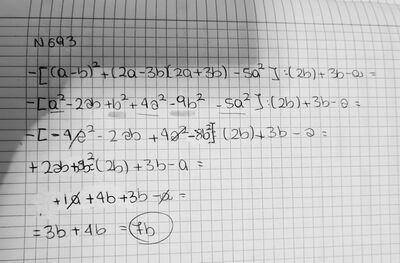 N 693
-[(a-b)²+(2a-3b[2a+3b)-5a²]:(2b)+3b-a=
-[a²-2ab+b²+4a²-9b²-5a²]:(2b)+3b-a=
-[-4a²-2ab+4a²-8b²](2b)+3b-a=
+2ab+8b²:(2b)+3b-a=
+1a+4b+3b-a=
=3b+4b=7b